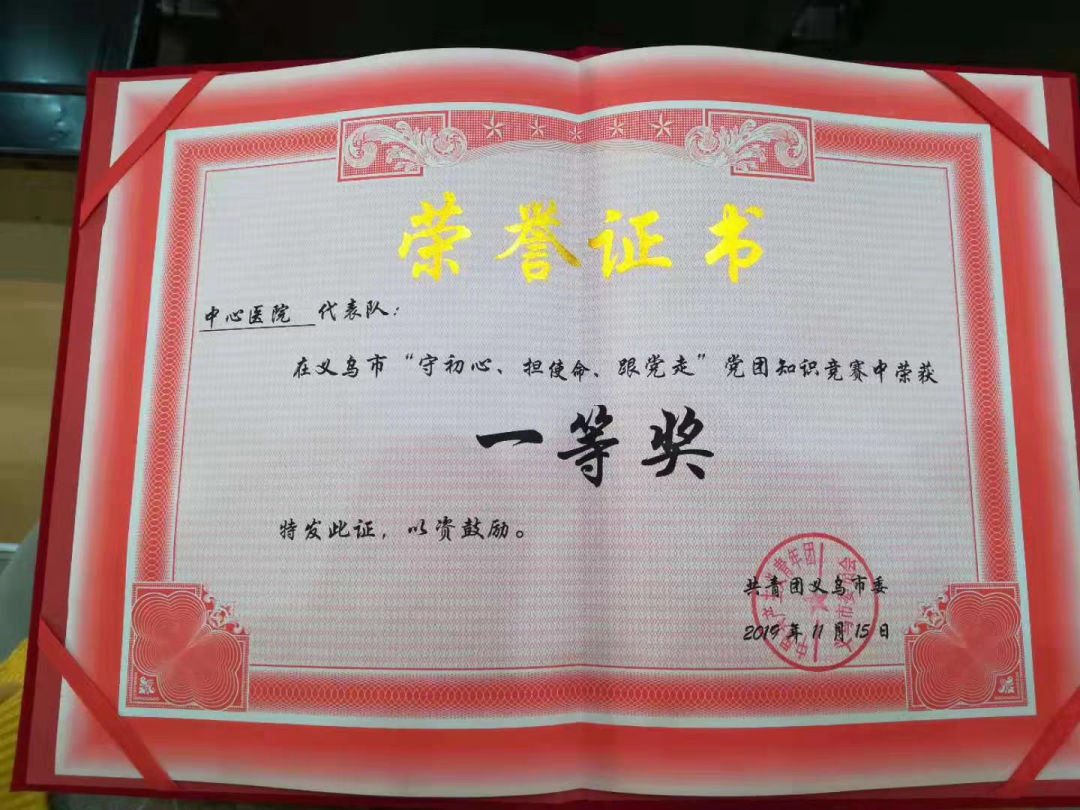 荣誉证书
中心医院 代表队：
在义乌市“守初心、担使命、跟党走”党团知识竞赛中荣获
一等奖
特发此证，以资鼓励。
共青团义乌市委
2019年11月15日